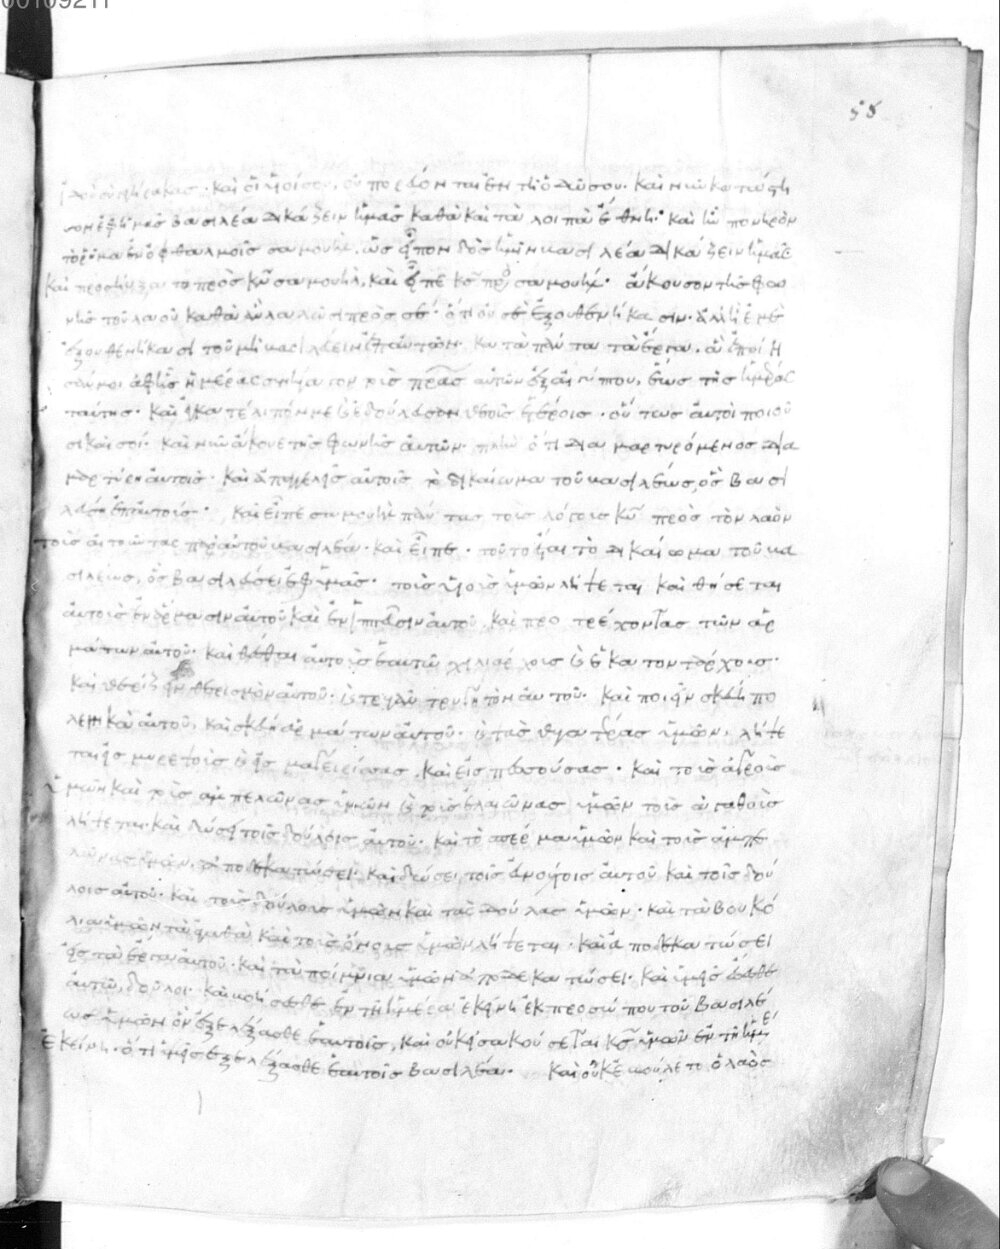 00109211
58
ἰδοὺ σὺ γεγήρακας· καὶ οἱ υἱοί σου οὐ πορεύονται ἐν τῇ ὁδῷ σου· καὶ νῦν κατάστη
σον ἐφ' ἡμᾶς βασιλέα δικάζειν ἡμᾶς καθὰ καὶ τὰ λοιπὰ ἔθνη· καὶ ἦν πονηρὸν
τὸ ῥῆμα ἐν ὀφθαλμοῖς σαμουὴλ, ὡς εἶπον δὸς ἡμῖν βασιλέα δικάζειν ἡμᾶς
καὶ προσηύξατο πρὸς κν σαμουὴλ, καὶ εἶπε κς πρὸς σαμουήλ· ἄκουσον τῆς φω
νῆς τοῦ λαοῦ καθὰ ἂν λαλῶσι πρὸς σέ· ὅτι οὐ σὲ ἐξουθενήκασιν· ἀλλ' ἢ ἐμὲ
ἐξουθενήκασι τοῦ μὴ βασιλεύειν ἐπ' αὐτῶν· κατὰ πάντα τὰ ἔργα, ἃ ἐποίη
σάν μοι ἀφ' ἧς ἡμέρας ἀνήγαγον τοὺς πρας αὐτῶν ἐξ αἰγύπτου, ἕως τῆς ἡμέρας
ταύτης· καὶ ἐγκατέλιπόν με καὶ ἐδούλευον θεοῖς ἑτέροις· οὕτως αὐτοὶ ποιοῦ
σι καὶ σοί· καὶ νῦν ἄκουε τῆς φωνῆς αὐτῶν· πλὴν ὅτι διαμαρτυρόμενος δια
μαρτύρῃ αὐτοῖς· καὶ ἀπαγγελεῖς αὐτοῖς τὸ δικαίωμα τοῦ βασιλέως, ὃς βασι
λεύσει ἐπ' αὐτούς· καὶ εἶπε σαμουὴλ πάντας τοὺς λόγους κυ πρὸς τὸν λαὸν
τοὺς αἰτοῦντας παρ' αὐτοῦ βασιλέα· καὶ εἶπε· τοῦτο ἔσται τὸ δικαίωμα τοῦ βα
σιλέως, ὃς βασιλεύσει ἐφ' ὑμᾶς· τοὺς υἱοὺς ὑμῶν λήψεται καὶ θήσεται
αὐτοὺς ἐν ἅρμασιν αὐτοῦ καὶ ἐν ἱππεῦσιν αὐτοῦ, καὶ προτρέχοντας τῶν ἁρ
μάτων αὐτοῦ· καὶ θέσθαι αὐτοὺς ἑαυτῷ χιλιάρχους καὶ ἑκατοντάρχους·
καὶ θερίζειν θερισμὸν αὐτοῦ· καὶ τρυγᾶν τρυγητὸν αὐτοῦ· καὶ ποιεῖν σκεύη πο
λεμικὰ αὐτοῦ, καὶ σκεύη ἁρμάτων αὐτοῦ· καὶ τὰς θυγατέρας ὑμῶν, λήψε
ται εἰς μυρεψοὺς καὶ εἰς μαγειρίσσας, καὶ εἰς πεσσούσας· καὶ τοὺς ἀγροὺς
ὑμῶν καὶ τοὺς ἀμπελῶνας ὑμῶν καὶ τοὺς ἐλαιῶνας ὑμῶν τοὺς ἀγαθοὺς
λήψεται· καὶ δώσει τοῖς δούλοις αὐτοῦ· καὶ τὸ σπέρμα ὑμῶν καὶ τοὺς ἀμπε
λῶνας ὑμῶν, ἀποδεκατώσει· καὶ δώσει τοῖς εὐνούχοις αὐτοῦ καὶ τοῖς δού
λοις αὐτοῦ· καὶ τοὺς δούλους ὑμῶν καὶ τὰς δούλας ὑμῶν· καὶ τὰ βουκό
λια ὑμῶν τὰ ἀγαθὰ καὶ τοὺς ὄνους ὑμῶν λήψεται· καὶ ἀποδεκατώσει
εἰς τὰ ἔργα αὐτοῦ· καὶ τὰ ποίμνια ὑμῶν ἀποδεκατώσει· καὶ ὑμεῖς ἔσεσθε
αὐτῷ, δοῦλοι· καὶ βοήσεσθε ἐν τῇ ἡμέρᾳ ἐκείνῃ ἐκ προσώπου τοῦ βασιλέ
ως ὑμῶν ὃν ἐξελέξασθε ἑαυτοῖς, καὶ οὐκ εἰσακούσεται κς ὑμῶν ἐν τῇ ἡμέρᾳ
ἐκείνῃ· ὅτι ὑμεῖς ἐξελέξασθε ἑαυτοῖς βασιλέα· καὶ οὐκ ἐβούλετο ὁ λαὸς